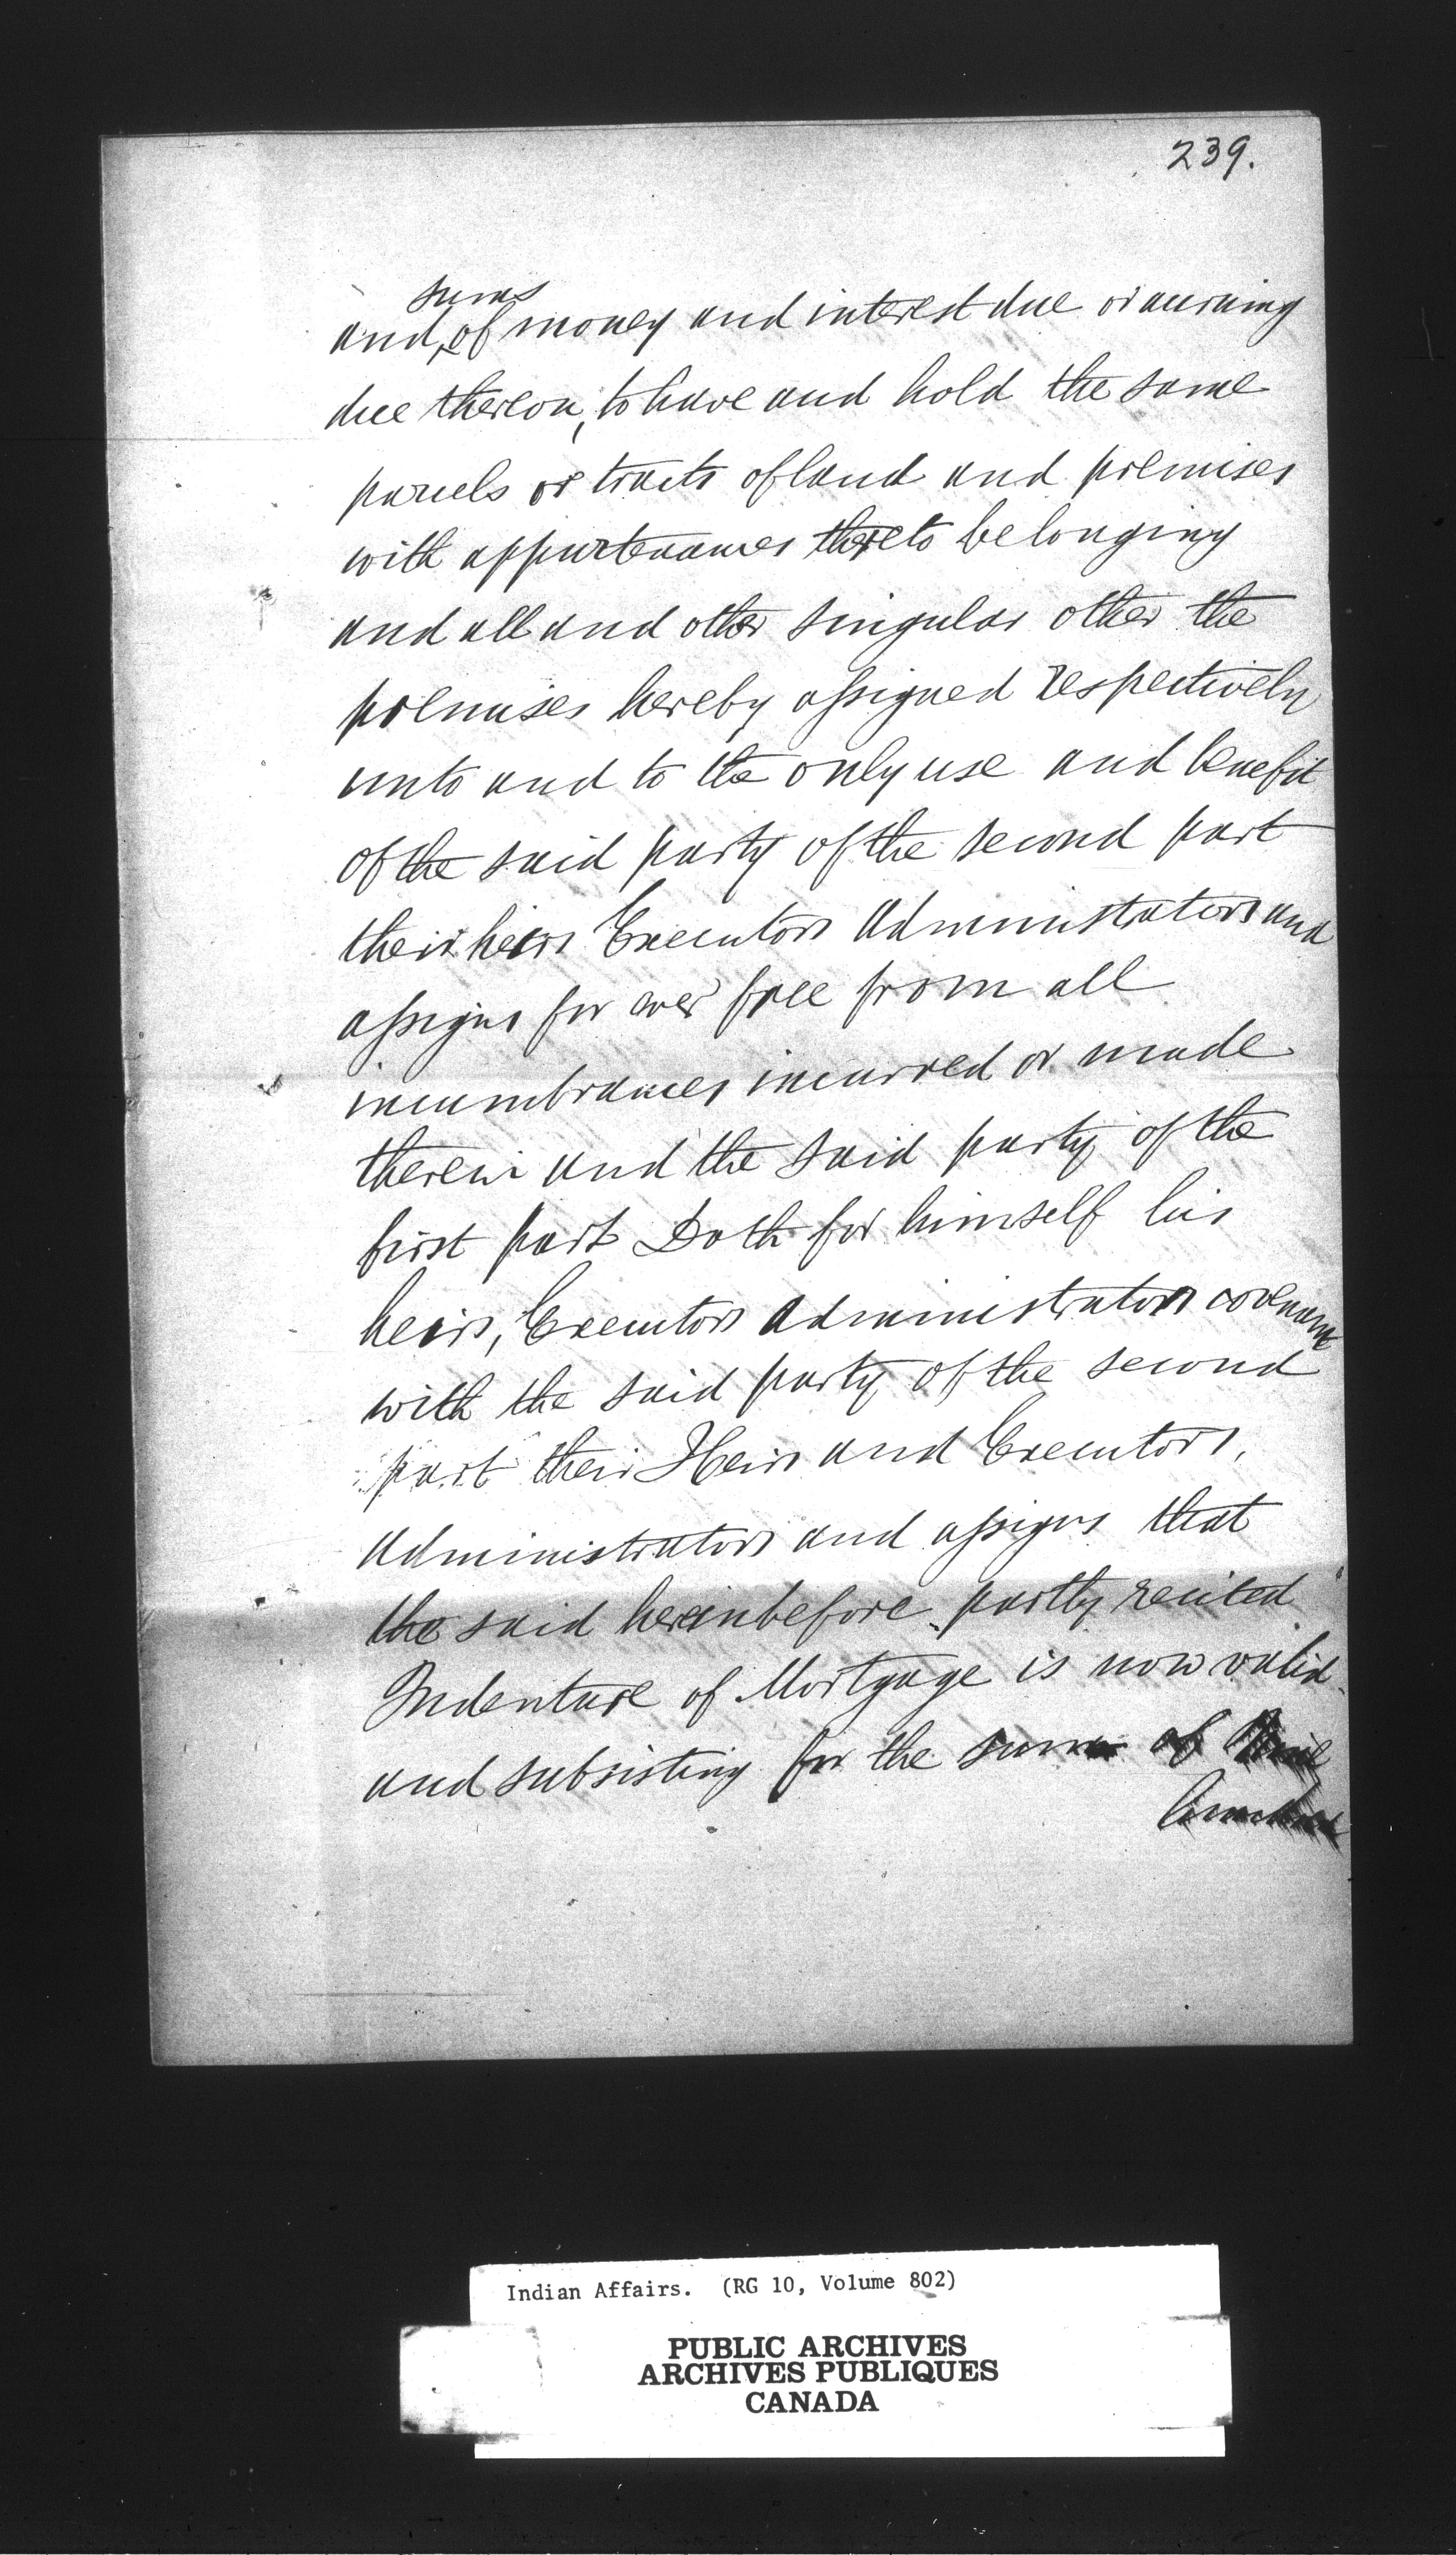 239.
sums
and, of money and interest due or accruing
due thereon, to have and hold the same
parcels or tracts of land and premises
with appurtenances thereto belonging
and all and other singular other the
premises hereby assigned respectively
unto and to the only use and benefit
of the said party of the second part
their heirs Executors Administrators and
assigns for ever free from all
incumbrances incurred or made
therein and the said party of the
first part Doth for himself his
heirs, Executors Administrators covenant
with the said party of the second
part their Heirs and Executors,
Administrators and assigns that
the said hereinbefore partly recited
Indenture of Mortgage is now valid
and subsisting for the sum of
Indian Affairs. (RG 10, Volume 802)
PUBLIC ARCHIVES
ARCHIVES PUBLIQUES
CANADA